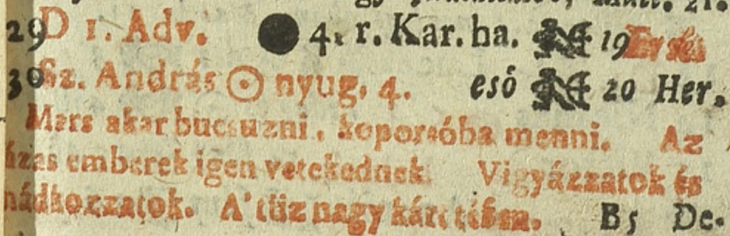 29 D 1. Adv. ● 4. r. Kar. ha. 19
30 Sz. András ☉ nyug. 4. eső 20 Her.
Mars akar bucsuzni, koporsóba menni. Az
emberek igen vetekednek. Vigyázzatok és
A' tüz nagy kárt B5 De-